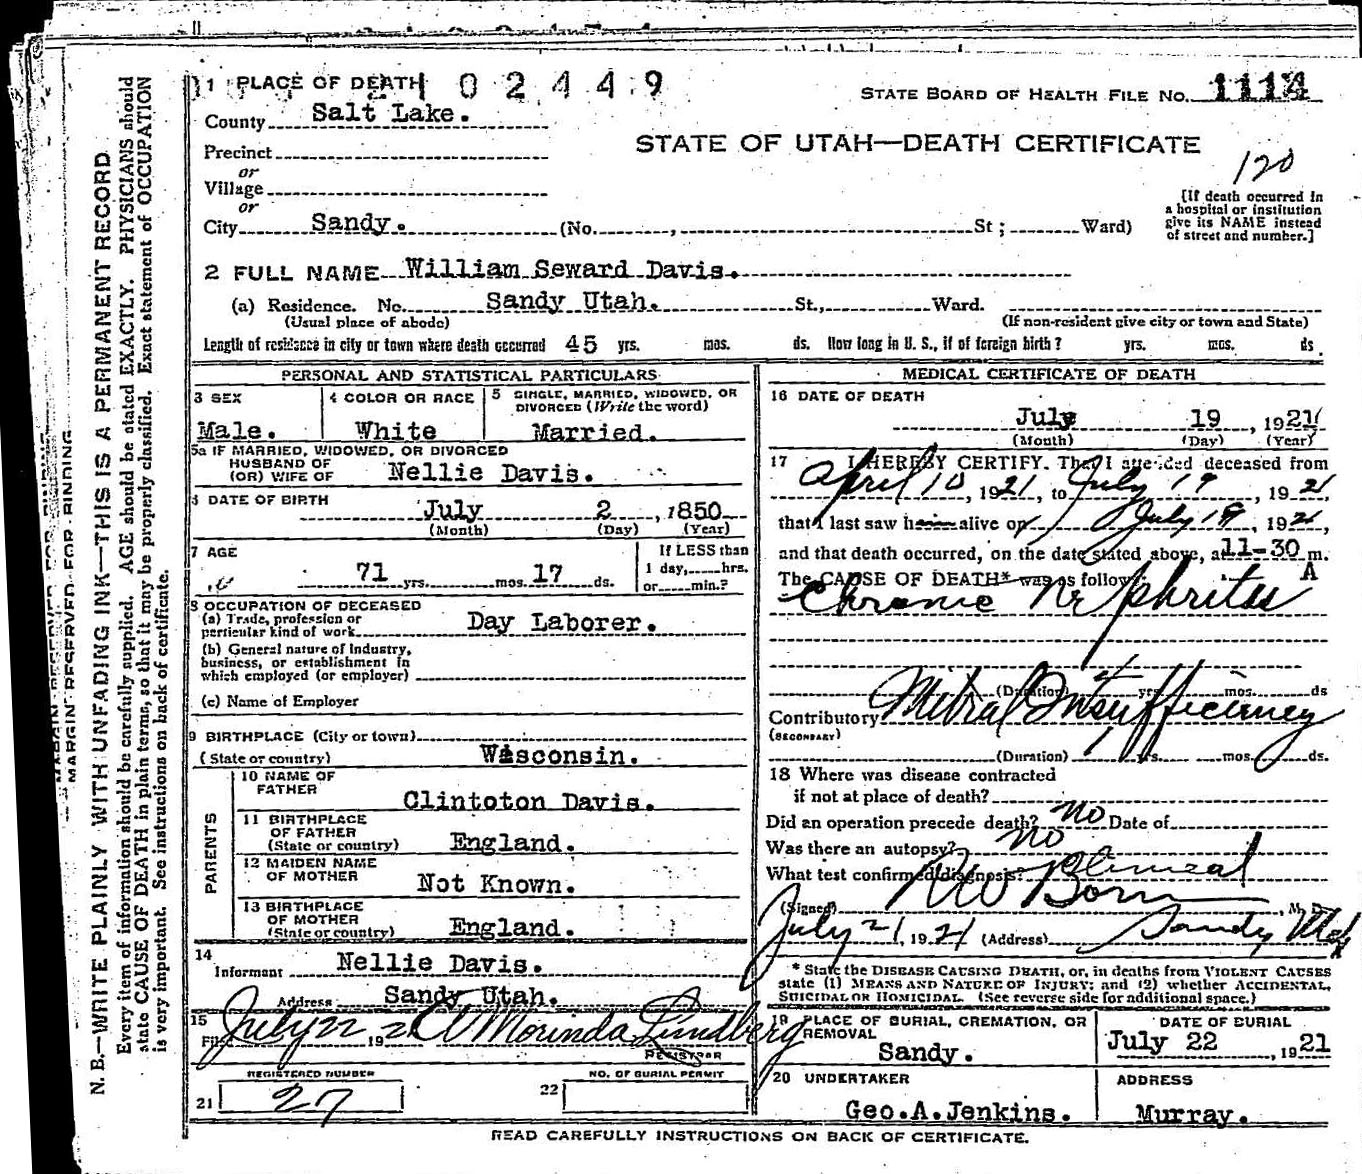 1 PLACE OF DEATH 1 0 2 4 4 9
STATE BOARD OF HEALTH FILE No. 1114
County Salt Lake.
STATE OF UTAH—DEATH CERTIFICATE
Precinct
or
120
Village
or
[If death occurred in
a hospital or institution
give its NAME instead
of street and number.]
City Sandy. (No. , St ; Ward)
2 FULL NAME William Seward Davis.
(a) Residence. No. Sandy Utah. St., Ward.
(Usual place of abode) (If non-resident give city or town and State)
Length of residence in city or town where death occurred 45 yrs. mos. ds. How long in U. S., if of foreign birth? yrs. mos. ds.
PERSONAL AND STATISTICAL PARTICULARS
3 SEX
Male.
4 COLOR OR RACE
White
5 SINGLE, MARRIED, WIDOWED, OR
DIVORCED (Write the word)
Married.
5a IF MARRIED, WIDOWED, OR DIVORCED
HUSBAND OF
(OR) WIFE OF Nellie Davis.
6 DATE OF BIRTH
July 2 , 1850
(Month) (Day) (Year)
7 AGE
71 yrs. mos. 17 ds.
If LESS than
1 day, hrs.
or min.?
8 OCCUPATION OF DECEASED
(a) Trade, profession or
particular kind of work Day Laborer.
(b) General nature of Industry,
business, or establishment in
which employed (or employer)
(c) Name of Employer
9 BIRTHPLACE (City or town)
(State or country) Wisconsin.
PARENTS
10 NAME OF
FATHER
Clintoton Davis.
11 BIRTHPLACE
OF FATHER
(State or country) England.
12 MAIDEN NAME
OF MOTHER Not Known.
13 BIRTHPLACE
OF MOTHER
(State or country) England.
14
Informant Nellie Davis.
Address Sandy Utah.
15
July 22 1921 Morinda Lundberg
REGISTRAR
REGISTERED NUMBER
21 27
NO. OF BURIAL PERMIT
22
MEDICAL CERTIFICATE OF DEATH
16 DATE OF DEATH
July 19 , 1921
(Month) (Day) (Year)
17 I HEREBY CERTIFY. That I attended deceased from
April 10, 1921, to July 19, 1921,
that I last saw him alive on July 19, 1921,
and that death occurred, on the date stated above, at 11-30 m.
A
The CAUSE OF DEATH* was as follows:
Chronic Nephritis
(Duration) yrs. mos. ds
Contributory Mitral Insufficiency
(SECONDARY)
(Duration) 1 yrs. mos. ds.
18 Where was disease contracted
if not at place of death?
Did an operation precede death? no Date of
Was there an autopsy? no
What test confirmed diagnosis? Clinical
(Signed) , M. D.
July 21, 1921 (Address) Sandy Utah
* State the DISEASE CAUSING DEATH, or, in deaths from VIOLENT CAUSES
state (1) MEANS AND NATURE OF INJURY; and (2) whether ACCIDENTAL,
SUICIDAL OR HOMICIDAL. (See reverse side for additional space.)
19 PLACE OF BURIAL, CREMATION, OR
REMOVAL
Sandy.
DATE OF BURIAL
July 22 , 1921
20 UNDERTAKER
Geo.A.Jenkins.
ADDRESS
Murray.
READ CAREFULLY INSTRUCTIONS ON BACK OF CERTIFICATE.
MARGIN RESERVED FOR BINDING
N. B.—WRITE PLAINLY WITH UNFADING INK—THIS IS A PERMANENT RECORD
Every item of information should be carefully supplied. AGE should be stated EXACTLY. PHYSICIANS should
state CAUSE OF DEATH in plain terms, so that it may be properly classified. Exact statement of OCCUPATION
is very important. See instructions on back of certificate.